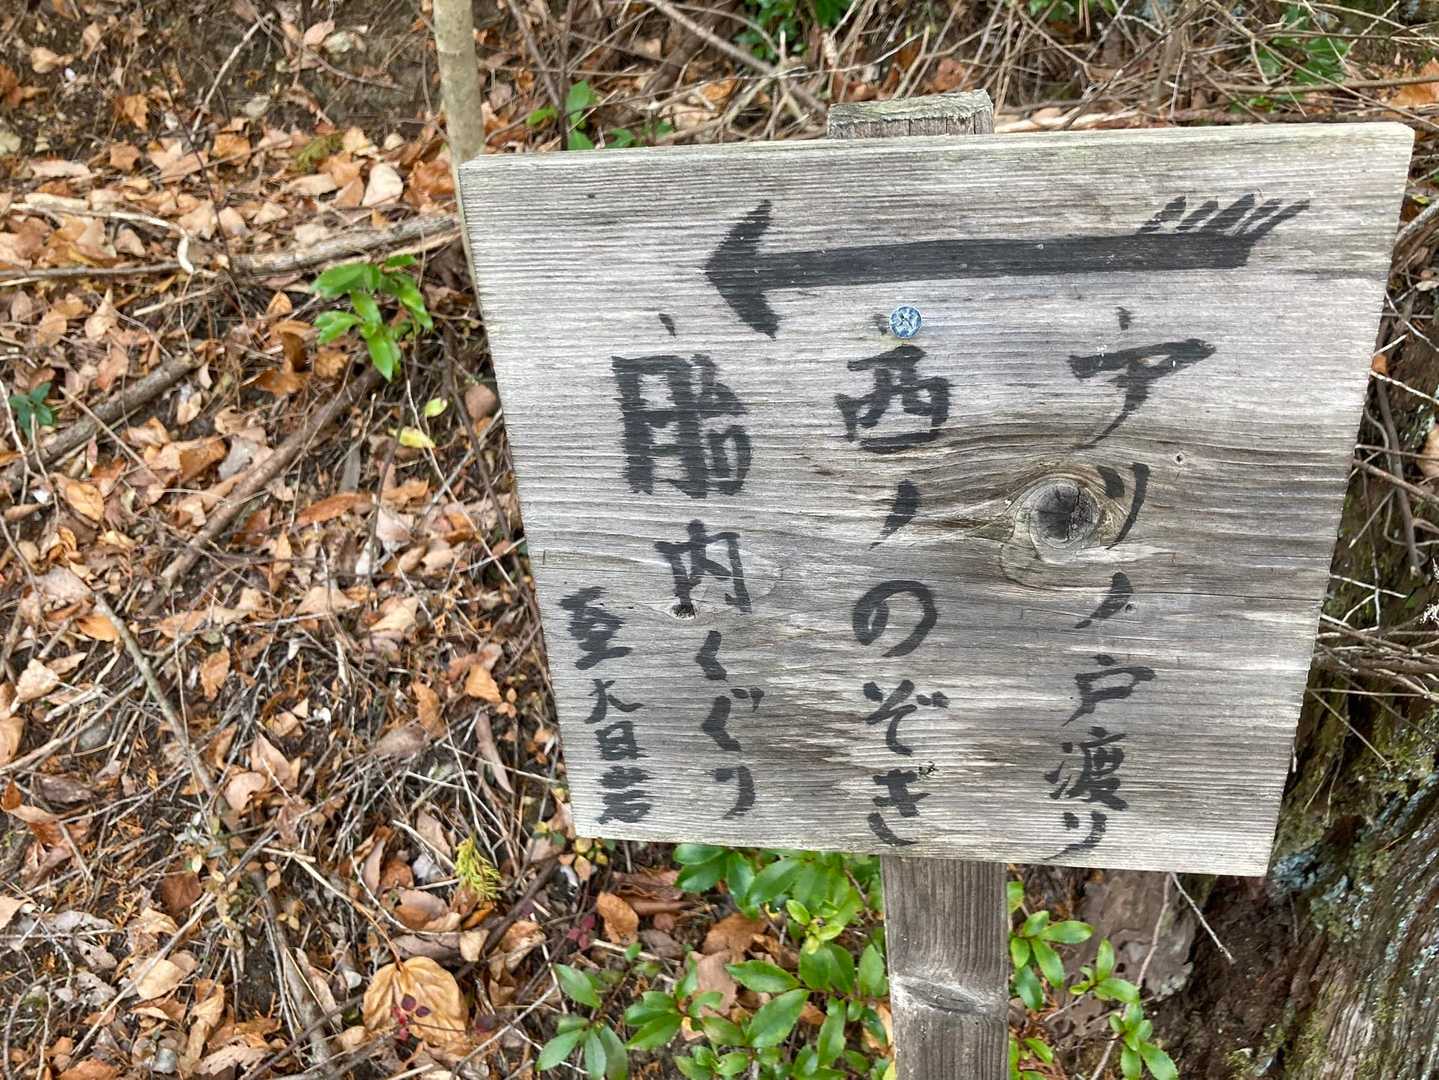 アリノ戸渡リ
西ノのぞき
胎内くぐり
至大日岩